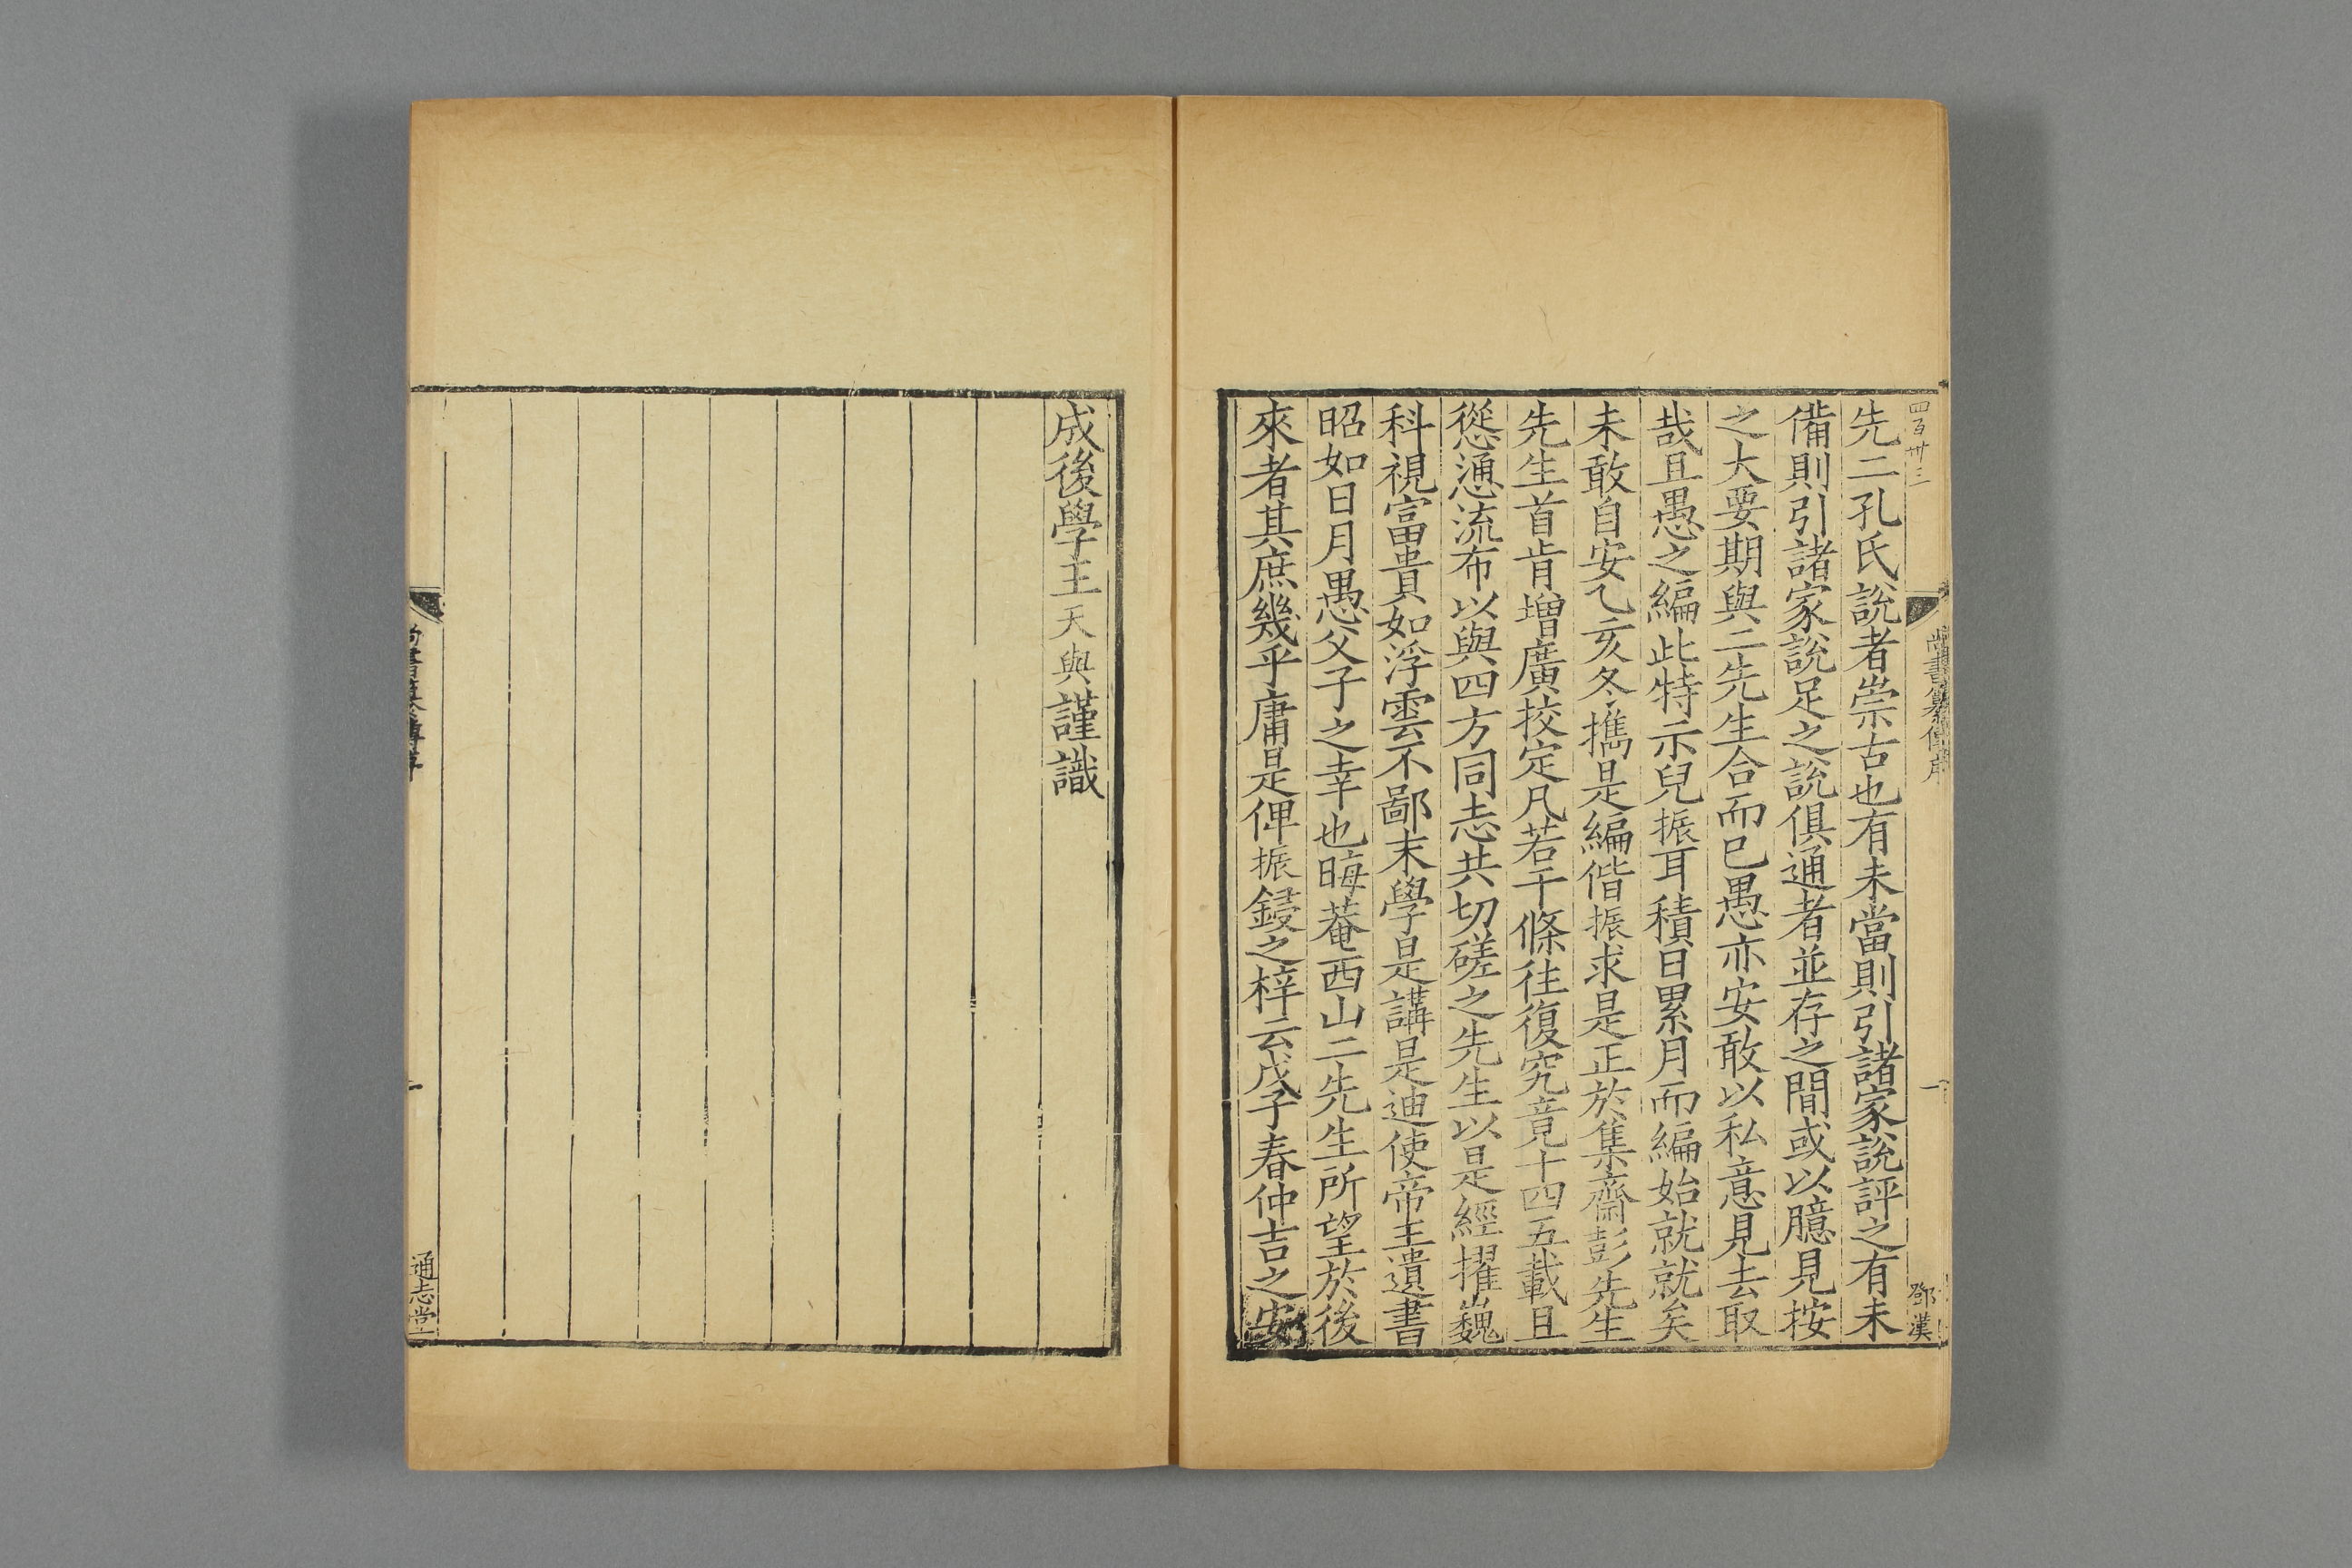 四百卅三
尚書纂傳序
一
鄧漢
先二孔氏說者崇古也有未當則引諸家說評之有未
備則引諸家說足之說俱通者並存之間或以臆見按
之大要期與二先生合而已愚亦安敢以私意見去取
哉且愚之編此特示兒振耳積日累月而編始就就矣
未敢自安乙亥冬攜是編偕振求是正於集齋彭先生
先生首肯增廣挍定凡若干條往復究竟十四五載且
慫慂流布以與四方同志共切磋之先生以是經擢巍
科視富貴如浮雲不鄙末學是講是迪使帝王遺書
昭如日月愚父子之幸也晦菴西山二先生所望於後
來者其庶幾乎庸是俾振鋟之梓云戊子春仲吉之安
成後學王天與謹識
尚書纂傳序
通志堂